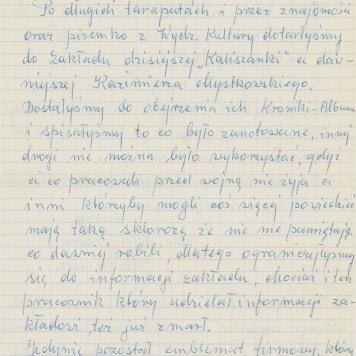 Po długich tarapatach i przez znajomości
oraz pisemko z Wydz. Kultury dotarłyśmy
do Zakładu dzisiejszej "Kaliszanki" a daw-
niejszej, Kazimierza Mystkowskiego.
Dostałyśmy do obejrzenia ich Kroniki-Albumu
i spisałyśmy to co było zanotowane, innej
drogi nie można było wykorzystać, gdyż
ci co pracowali przed wojną nie żyją a
inni którzyby mogli coś więcej powiedzieć
mają taką sklerozę że nic nie pamiętają
co dawniej robili, dlatego ograniczyłyśmy
się do informacji zakładu, chociaż i ich
pracownik który udzielał informacji za-
kładowi, też już zmarł.
Jedynie pozostał emblemat firmowy, który